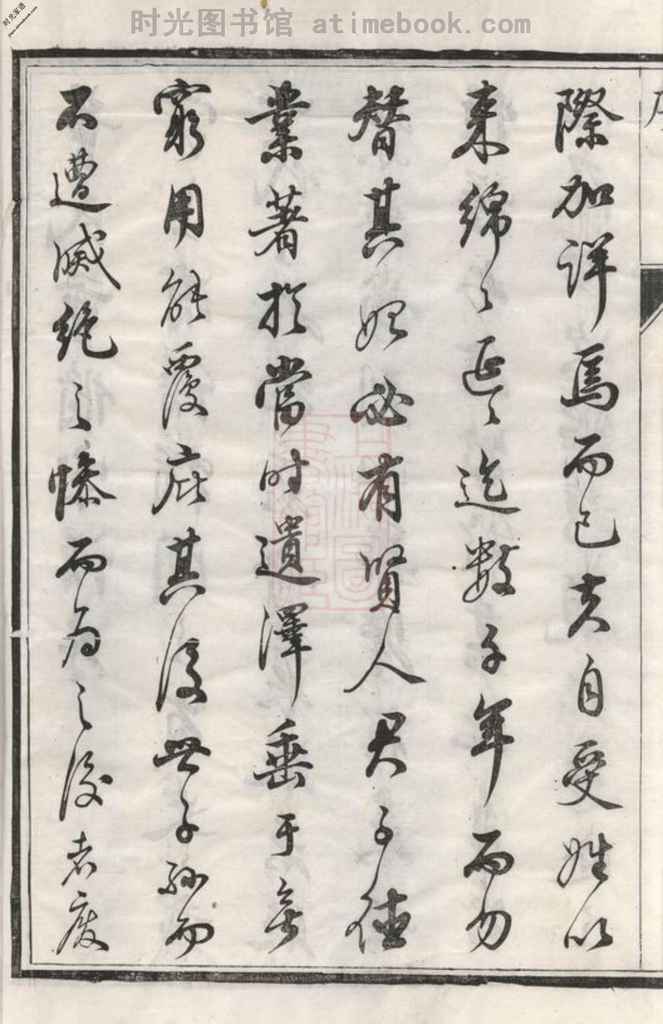 时光图书馆 atimebook.com
際加詳焉而已夫自受姓以
来綿々延々迄數千年而勿
替其始必有賢人君子德
業著於當时遺澤垂于無
窮用能覆庇其後世子孫而
不遭滅絶之惨而为之後者廢